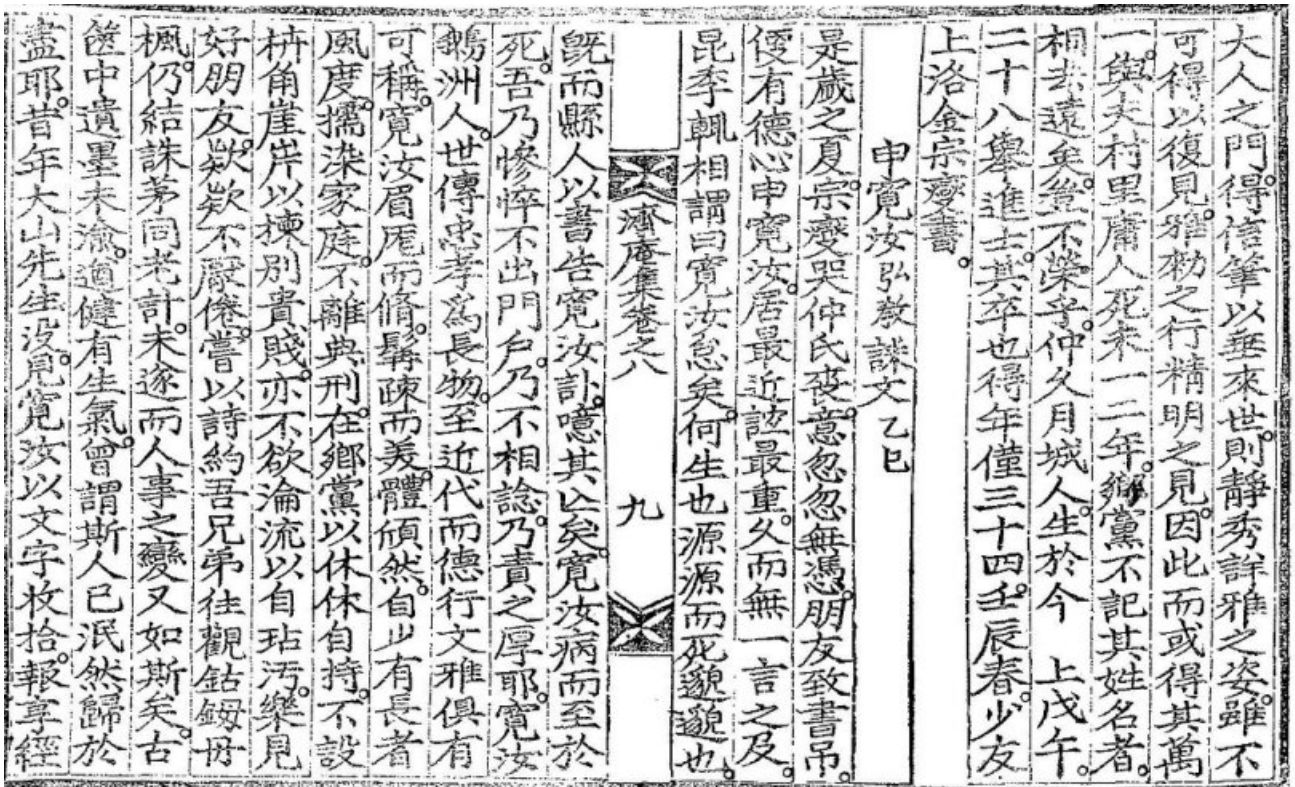 大人之門。得信筆以垂來世。則靜秀詳雅之姿。雖不
可得以復見。雅勑之行精明之見。因此而或得其萬
一。與夫村里庸人死未一二年。鄕黨不記其姓名者。
相去遠矣。豈不榮乎。仲久月城人。生於今 上戊午。
二十八擧進士。其卒也得年僅三十四。壬辰春。少友
上洛金宗燮書。
申寬汝弘敎誄文 乙巳
是歲之夏。宗燮哭仲氏喪。意忽忽無憑。朋友致書吊。
優有德心。申寬汝。居最近誼最重。久而無一言之及。
昆季輒相謂曰寬汝怠矣。何生也源源而死邈邈也。
濟庵集卷之八 九
旣而縣人以書告寬汝訃。噫其亡矣。寬汝病而至於
死。吾乃慘悴不出門戶。乃不相諗。乃責之厚耶。寬汝
鵝洲人。世傳忠孝爲長物。至近代而德行文雅俱有
可稱。寬汝眉厖而脩。髯疎而美。體頎然。自少有長者
風度。擩染家庭。不離典刑。在鄕黨以休休自持。不設
枿角崖岸以揀別貴賤。亦不欲淪流以自玷汚。樂見
好朋友。欵欵不厭倦。嘗以詩約吾兄弟往觀鈷鉧毌
楓。仍結誅茅同老計。未遂而人事之變又如斯矣。古
篋中遺墨未渝。遒健有生氣。曾謂斯人已泯然歸於
盡耶。昔年大山先生沒。見寬汝以文字收拾。報享經